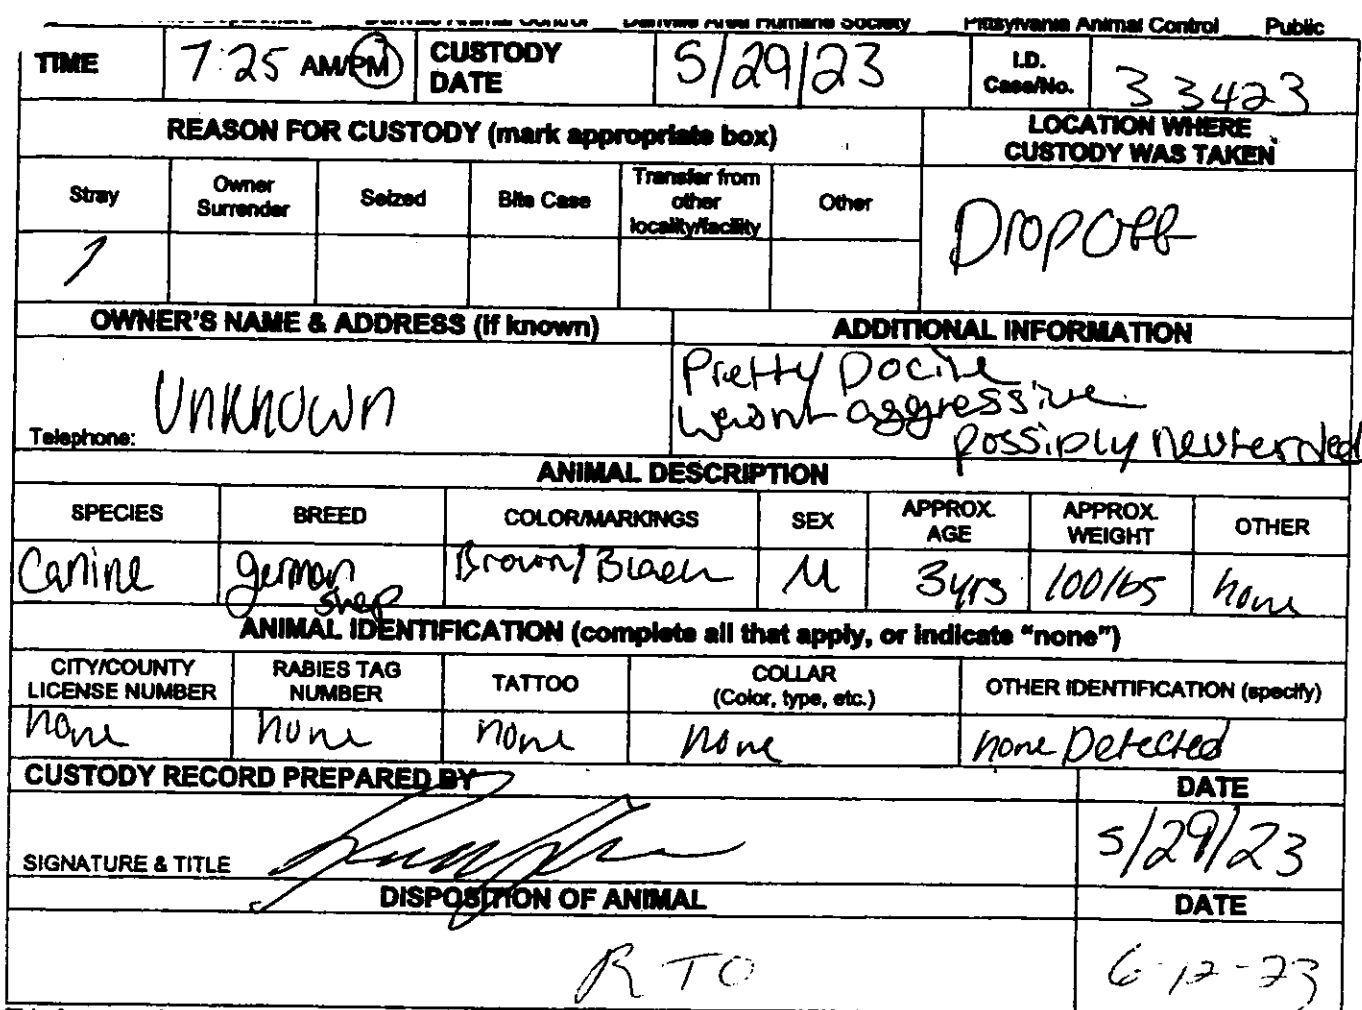 Danville Animal Control Danville Area Humane Society Pittsylvania Animal Control Public
TIME 7:25 AM/PM CUSTODY DATE 5/29/23 I.D. Case/No. 33423
REASON FOR CUSTODY (mark appropriate box) LOCATION WHERE CUSTODY WAS TAKEN
Stray Owner Surrender Seized Bite Case Transfer from other locality/facility Other
Drop Off
OWNER'S NAME & ADDRESS (if known) ADDITIONAL INFORMATION
Pretty Docile
Unknown
aggressive
Telephone:
possiply neuterded
ANIMAL DESCRIPTION
SPECIES BREED COLOR/MARKINGS SEX APPROX. AGE APPROX. WEIGHT OTHER
Canine german shep Brown/Black M 3yrs 100lbs none
ANIMAL IDENTIFICATION (complete all that apply, or indicate "none")
CITY/COUNTY LICENSE NUMBER RABIES TAG NUMBER TATTOO COLLAR (Color, type, etc.) OTHER IDENTIFICATION (specify)
none none none none none Detected
CUSTODY RECORD PREPARED BY DATE
SIGNATURE & TITLE 5/29/23
DISPOSITION OF ANIMAL DATE
RTO 6-12-23